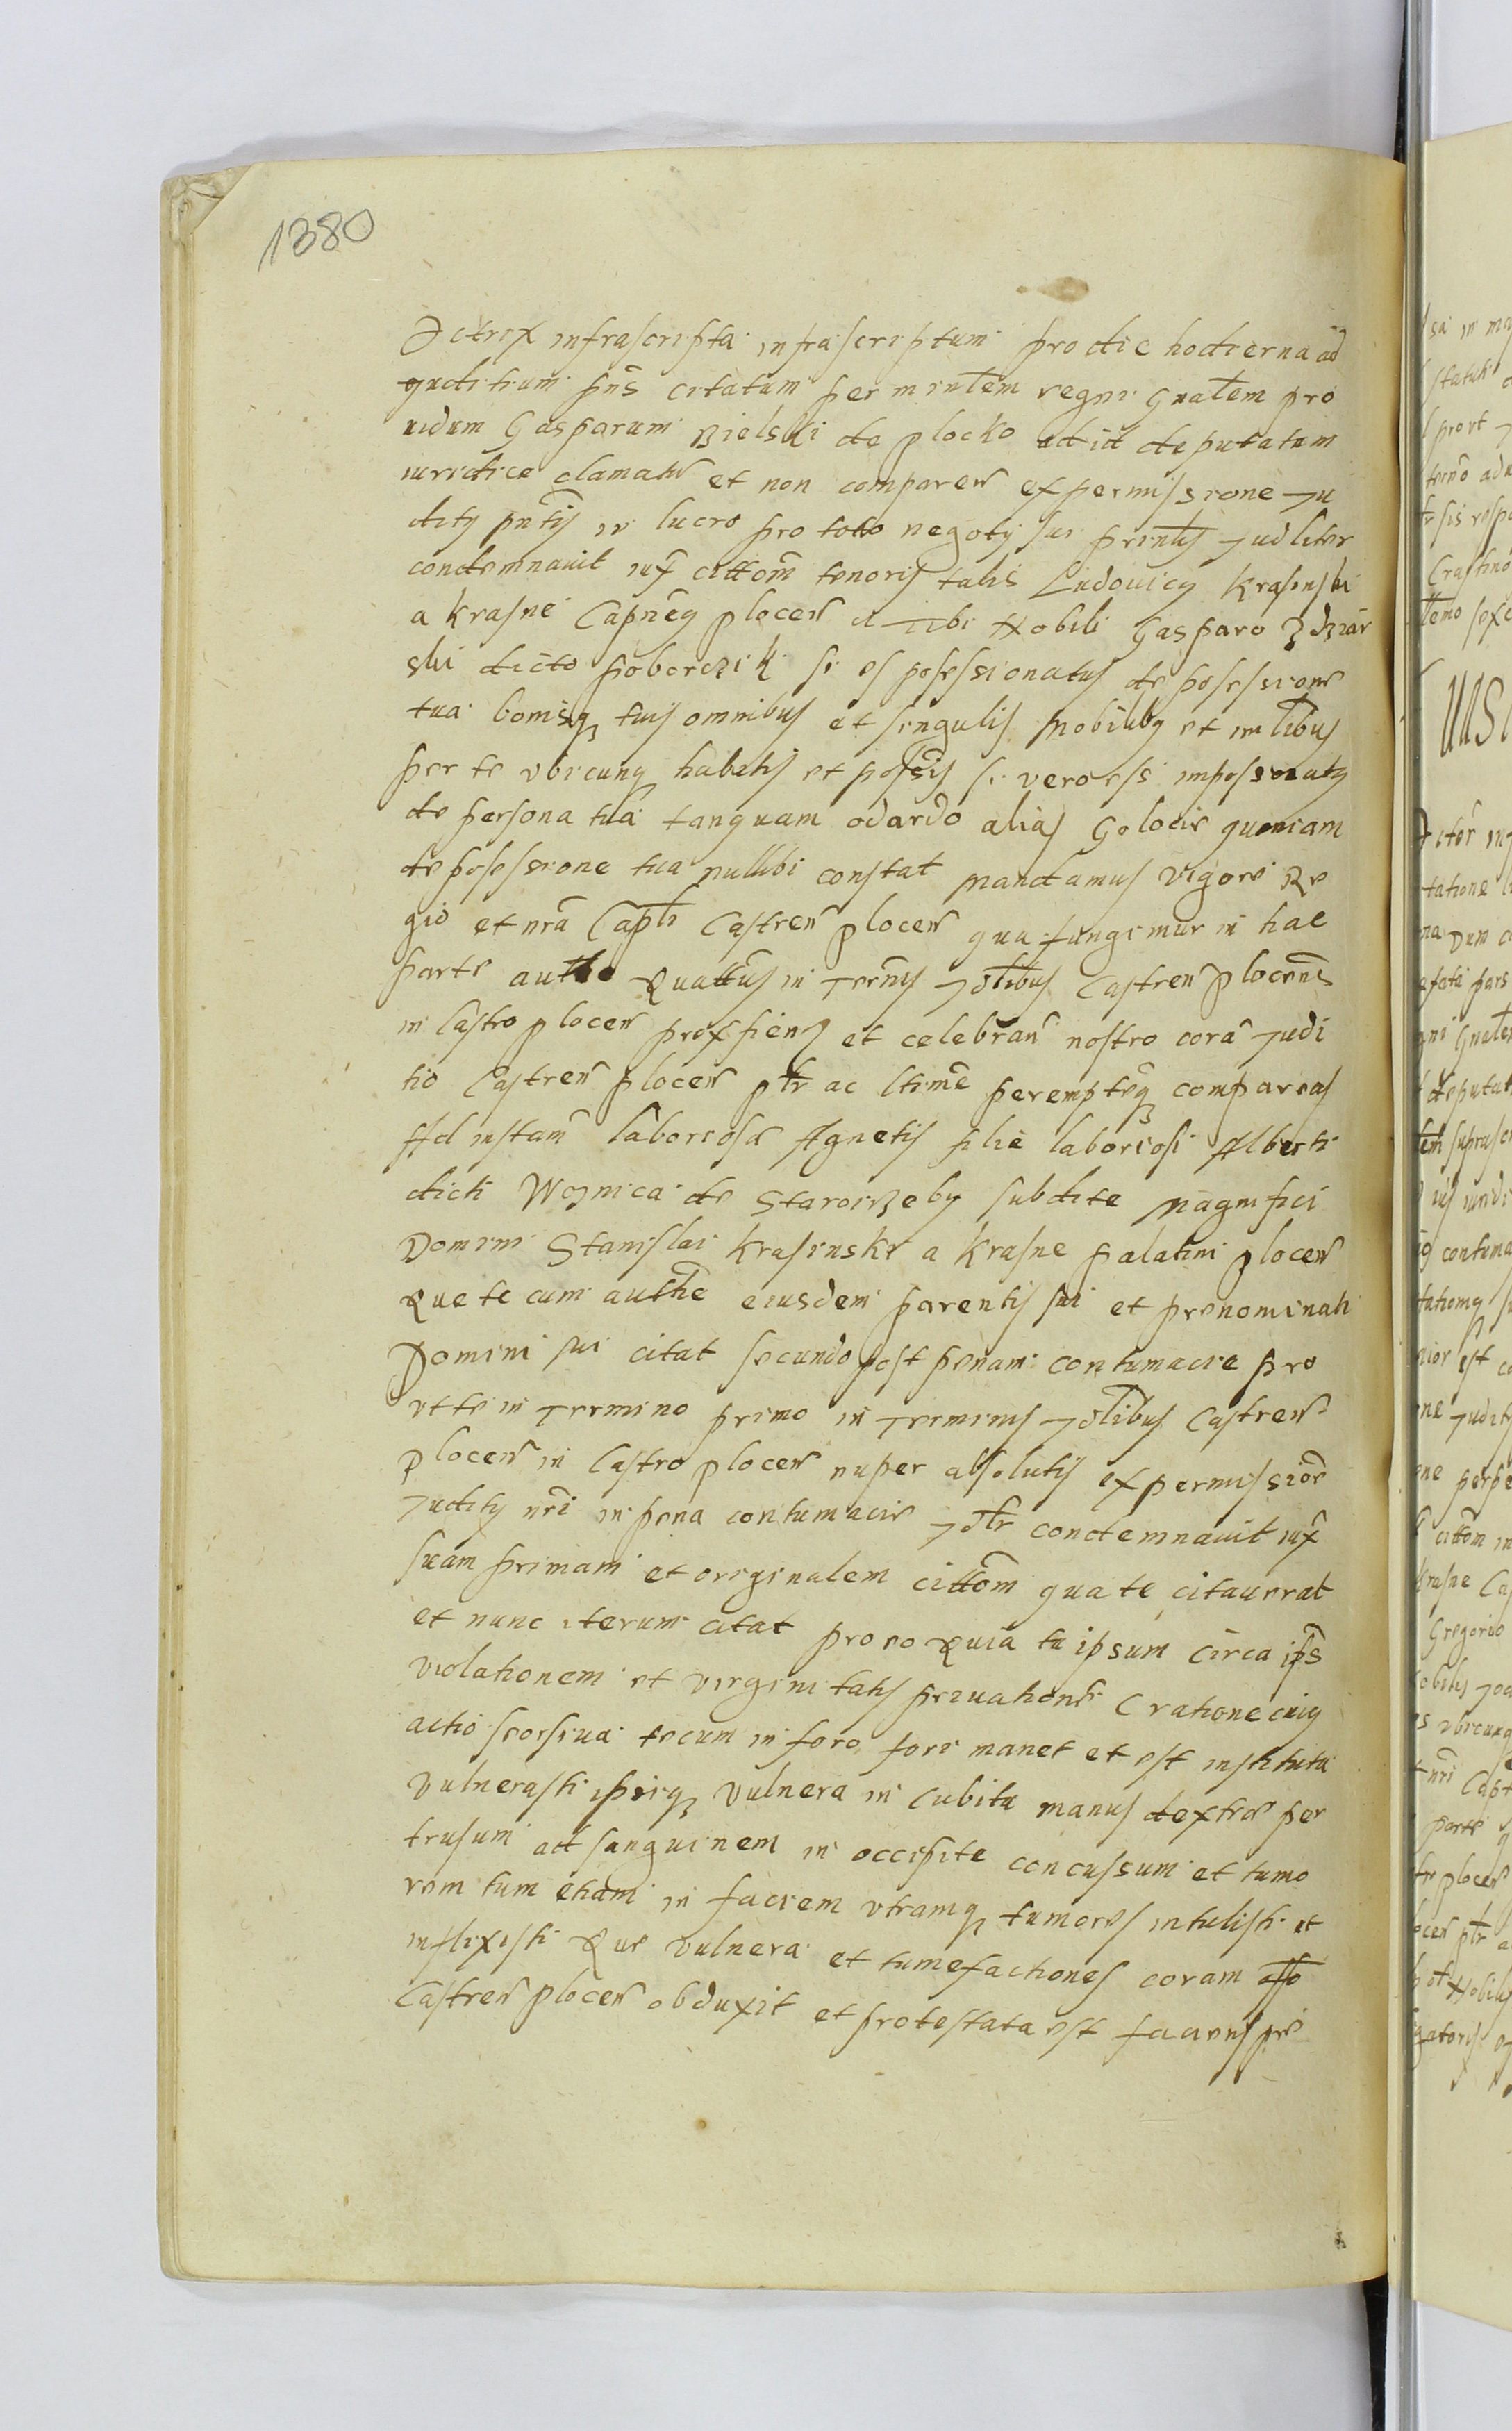 1380
Actrix infrascripta infrascriptum pro die hodierna ad
Juditium pns citatum per mintem regni Gnatem pro
uidum Gasparum Bielski de Plocko ad id deputatum
iuridice clamatu et non comparen ex permissione Ju
dity pntis in lucro pro toto negoty sui printis Judliter
condemnauit iux cittom tenoris talis Ludouicy Krasinski
a Krasne Capneg plocen Tibi Nobili Gasparo Zdziar
ski dicto poborczik si es possessionatus de possessione
tua bonisq tuis omnibus et singulis Mobilibg et imlibus
per te vbicunq habitis et possis si vero esi impossonatg
de persona tua tanquam odardo alias Golocie quoniam
de possessione tua nullibi constat Mandamus vigore Re
gio et nra Capli Castren plocen qua fungimur in hac
parte autho Quattus in Ternis Jdlibus Castren plocens
in Castro plocen prox fiend et celebran nostro cora Judi
tio Castren plocen ptr ac ltime perempteq compareas
Ad instam laboriosa Agnetis filie laboriosi Alberti
dicti Woznica de Starorzeby subdite Magnifici
Domini Stanislai Krasinski a Krasne palatini plocen
Que te cum authe eiusdem parentis sui et prenominati
Domini sui citat secundo post penam contumacie pro
vt te in Termino primo in Terminis Jdlibus Castren
plocen in Castro plocen nuper absolutis ex permissioe
Judity nri in pena contumacie Jdtr condemnauit iux
suam primam et originalem cittom qua te citauerat
et nunc iterum citat pro eo Quia tu ipsum circa ips
violationem et virginitatis priuationem C ratione cuig
actio seorsiua tecum in foro fori manet et est instituta
vulnerasti ipsiq vulnera in cubita manus dextra per
trusum ad sanguinem in occipite concussum et tumo
rem tum etiam in faciem vtramq tumores intulisti et
inflixisti Que vulnera et tumefactiones coram offo
Castren plocen obduxit et protestata est faciens pre